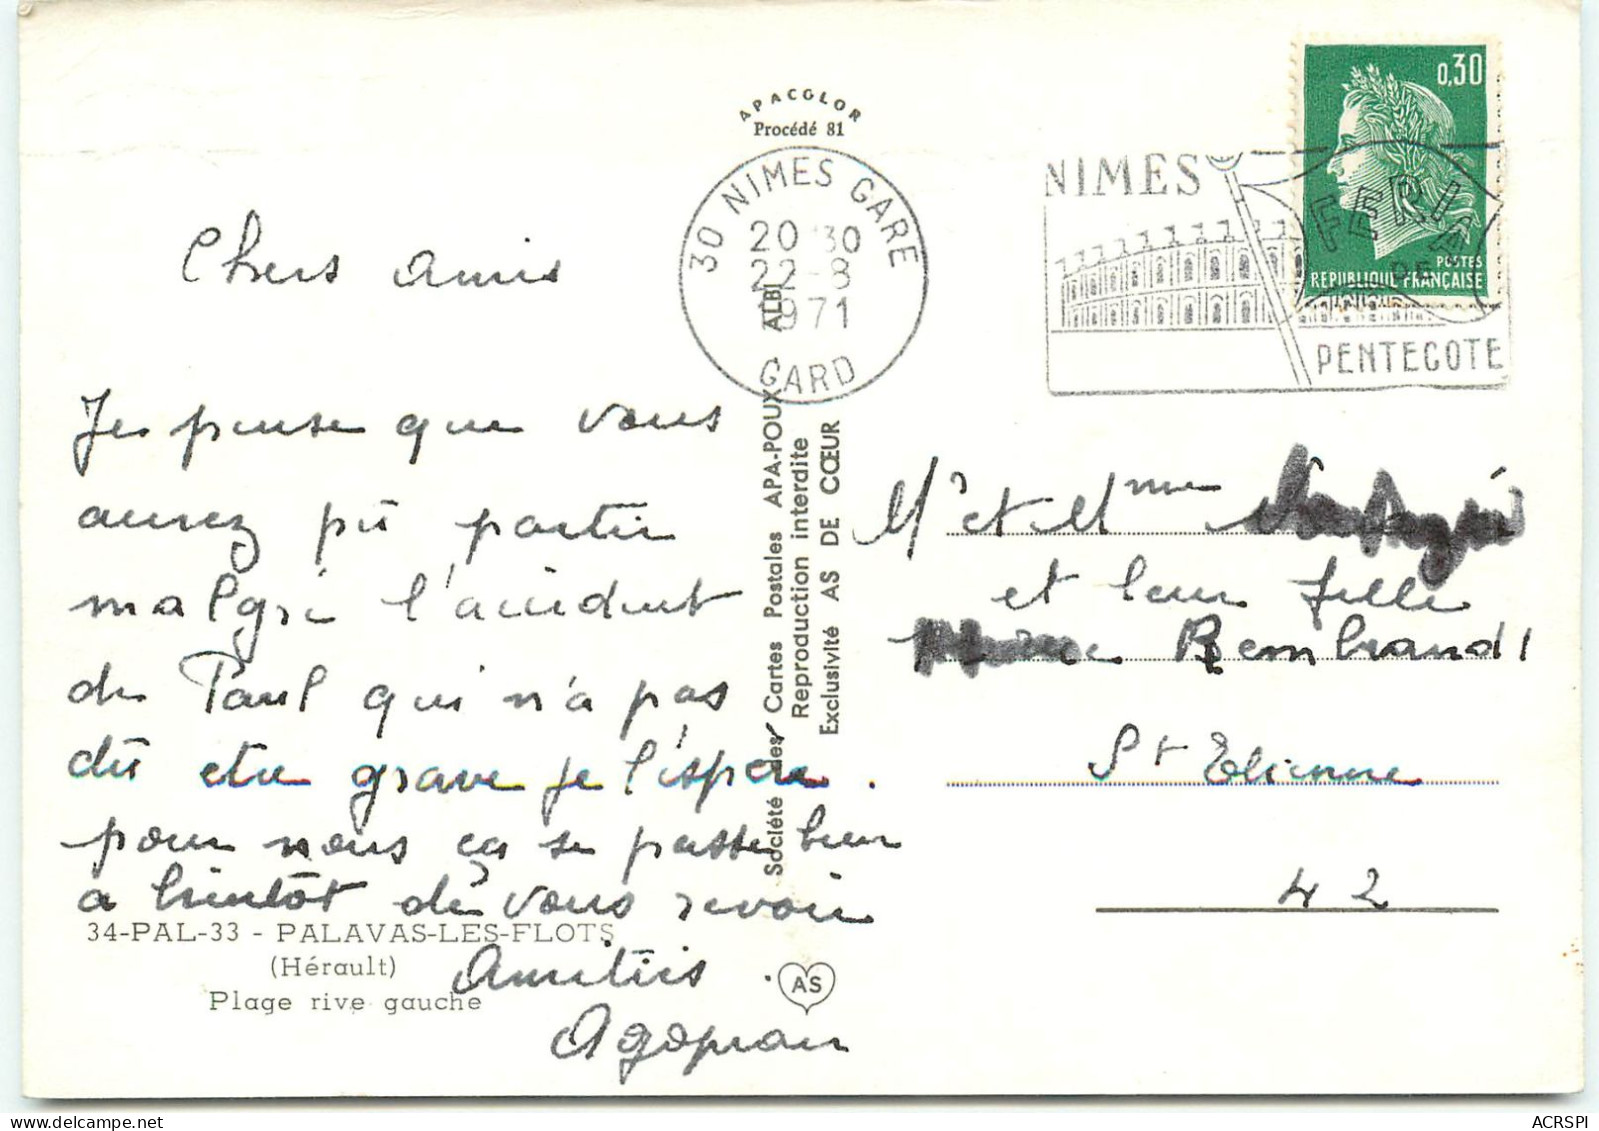 APACOLOR
Procédé 81
30 NIMES GARE
20 30
22-8
1971
GARD
NIMES
FERIA
DE
PENTECOTE
0,30
POSTES
REPUBLIQUE FRANÇAISE
Chers amis
Je pense que vous
aurez pû partir
malgré l'accident
de Paul qui n'a pas
dû etre grave je l'espére.
pour nous ça se passe bien
a bientôt de vous revoir
Amitiés.
Agopian
34-PAL-33 - PALAVAS-LES-FLOTS
(Hérault)
Plage rive gauche
Société des Cartes Postales APA-POUX - ALBI
Reproduction interdite
Exclusivité AS DE CŒUR
AS
Mr et Mme
et leur fille
Rembrandt
St Etienne
42
ACRSPI